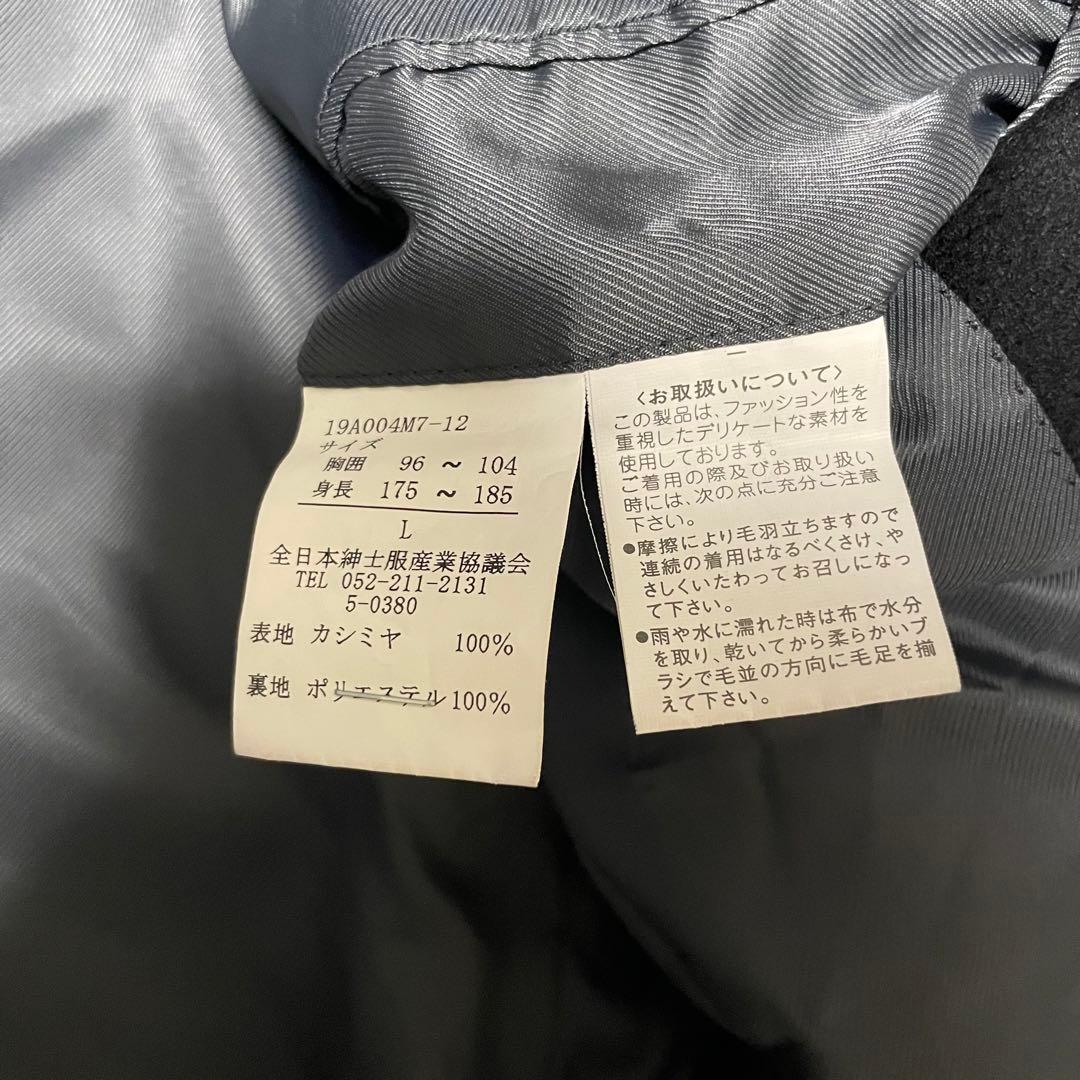 19A004M7-12
サイズ
胸囲 96 ~ 104
身長 175 ~ 185
L
全日本紳士服産業協議会
TEL 052-211-2131
5-0380
表地 カシミヤ 100%
裏地 ポリエステル100%
〈お取扱いについて〉
この製品は、ファッション性を
重視したデリケートな素材を
使用しております。
ご着用の際及びお取り扱い
時には、次の点に充分ご注意
下さい。
●摩擦により毛羽立ちますので
連続の着用はなるべくさけ、や
さしくいたわってお召しになっ
て下さい。
●雨や水に濡れた時は布で水分
を取り、乾いてから柔らかいブ
ラシで毛並の方向に毛足を揃
えて下さい。